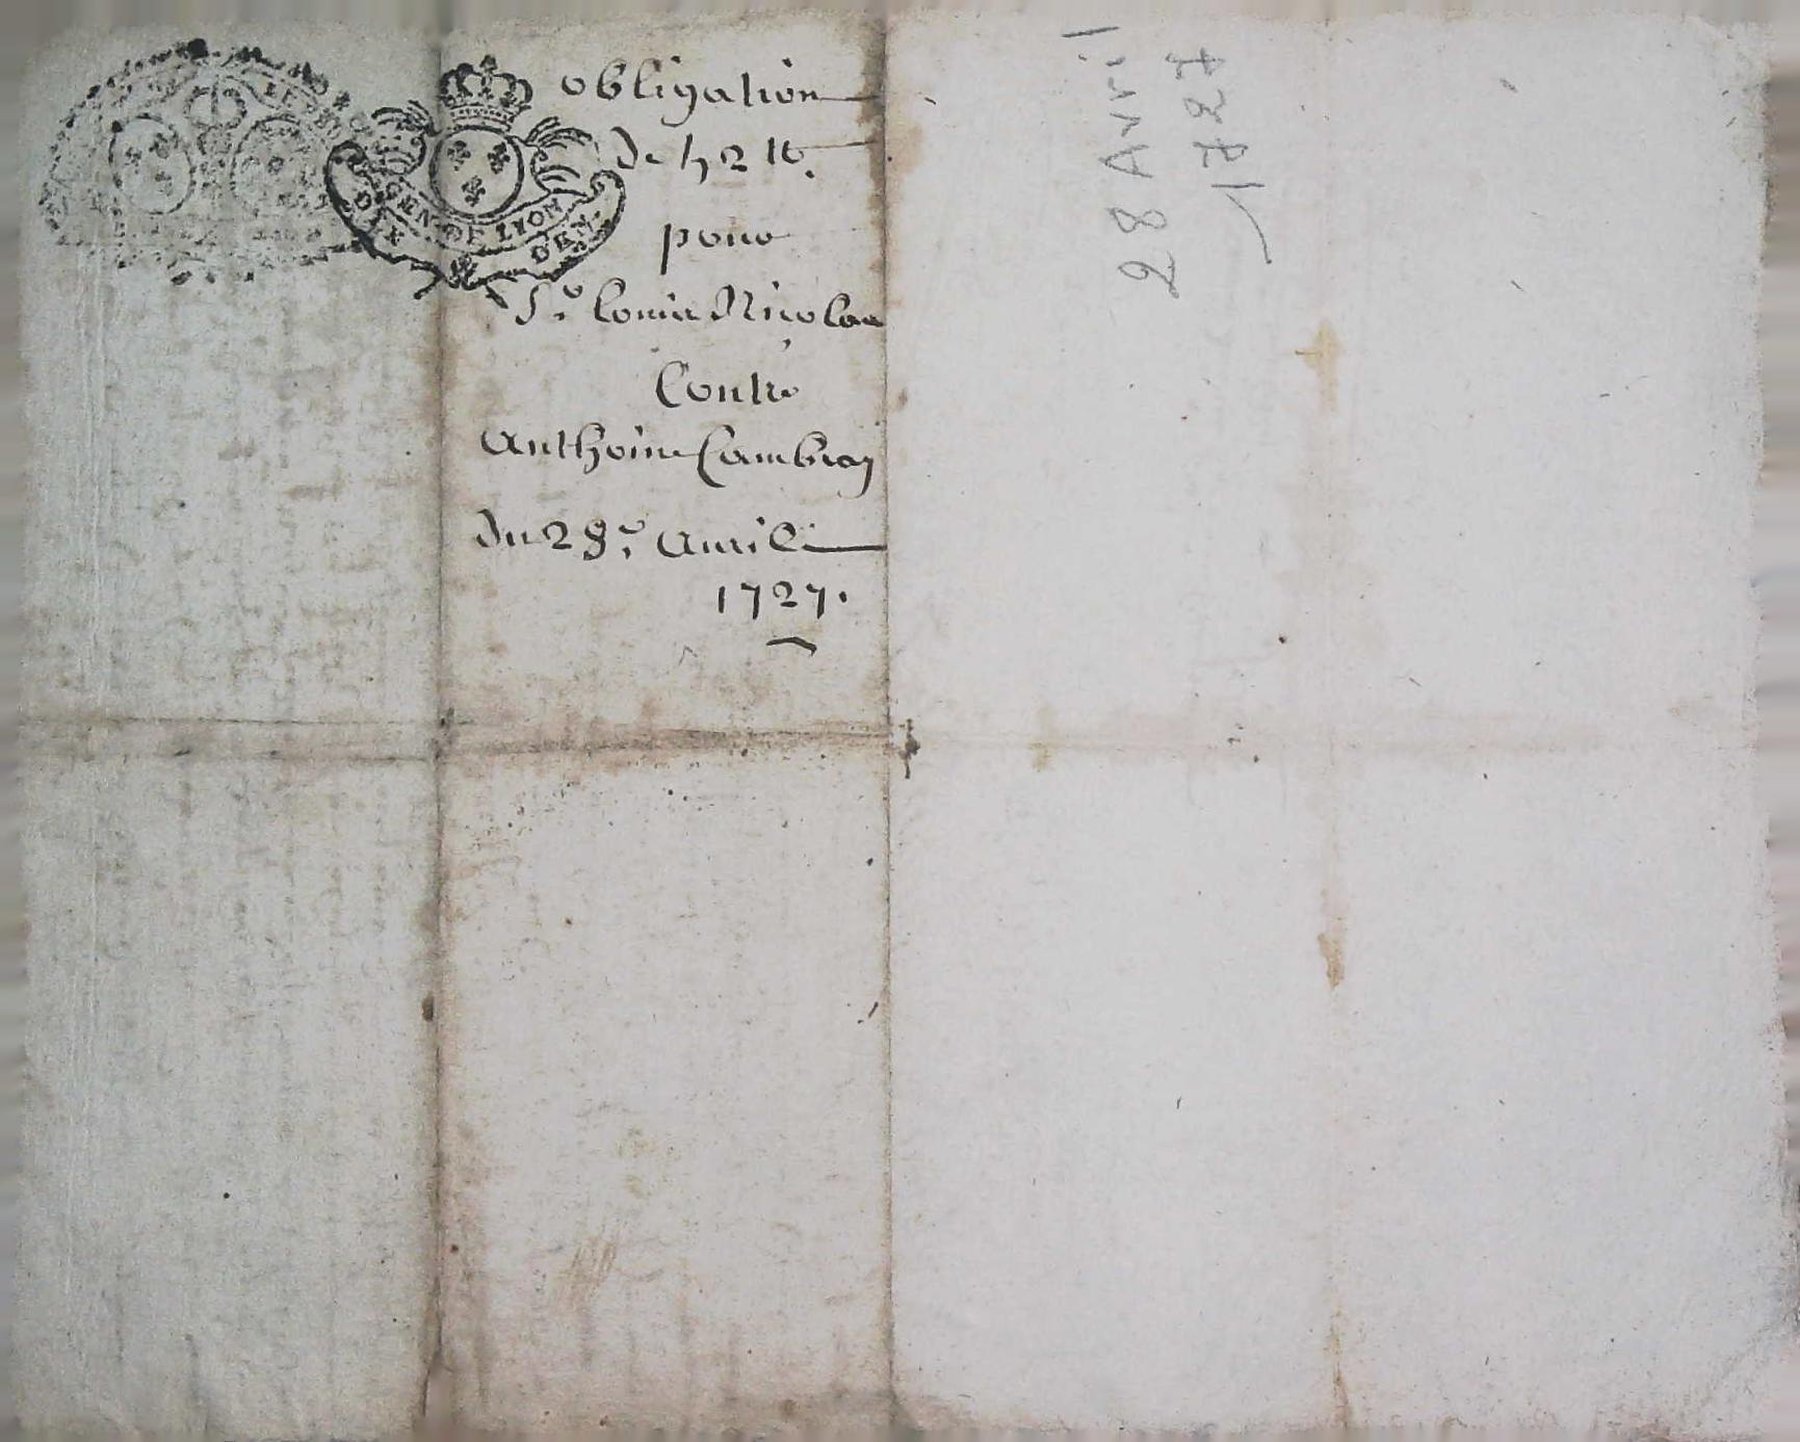 GEN. DE LYON
DEN.
obligation
de 42 lt.
pour
Sr. Louis Nicolas
Contre
Anthoine Cambray
du 28e. Auril
1727.
28 Avril
1727